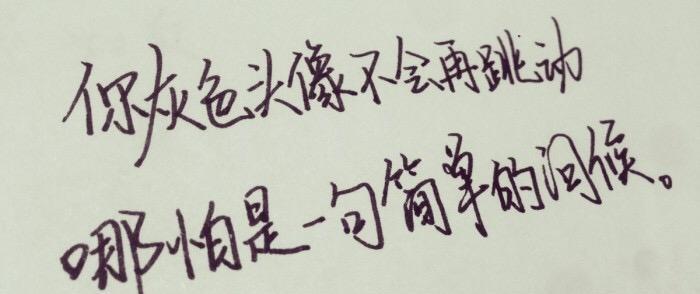 你灰色头像不会再跳动
哪怕是一句简单的问候。